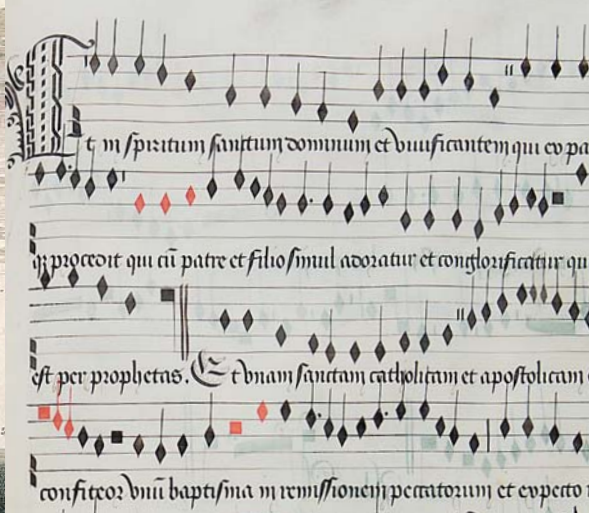 Et in spiritum sanctum dominum et vivificantem qui ex pa
qz procedit qui cū patre et filio simul adoratur et conglorificatur qu
est per prophetas. Et vnam sanctam catholicam et apostolicam
confiteor vnū baptisma in remissionem peccatorum et expecto